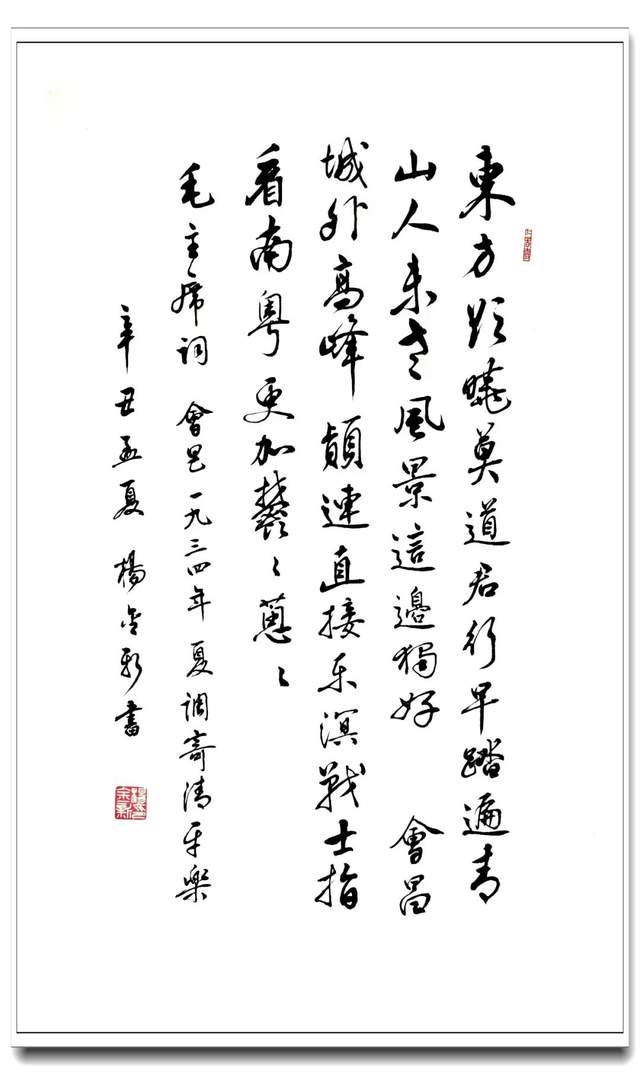 東方欲曉莫道君行早踏遍青
山人未老風景這邊獨好 會昌
城外高峰顛連直接东溟戰士指
看南粤更加欝〻蔥〻
毛主席词 會昌一九三四年夏調寄清平樂
辛丑孟夏 楊金新書
楊金新印